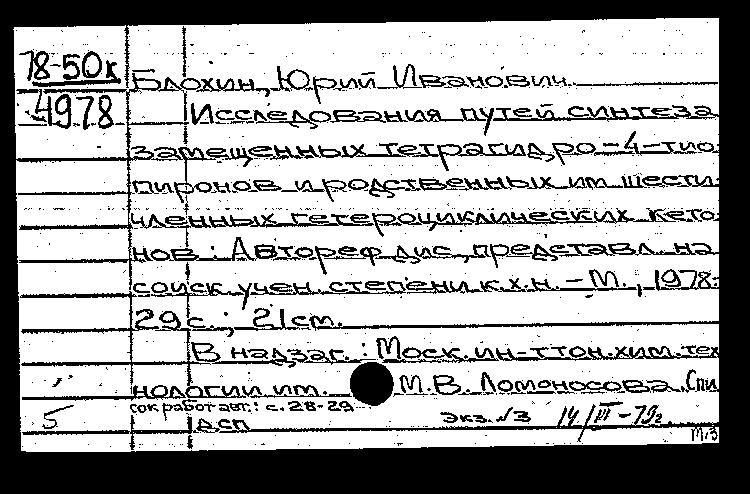 78-50к
4978
Блохин, Юрий Иванович.
Исследования путей синтеза
замещенных тетрагидро-4-тио
пиронов и родственных им шести-
членных гетероциклических кето-
нов : Автореф дис., представл. на
соиск. учен. степени к.х.н. - М., 1978.-
29 с. ; 21 см.
В надзаг. : Моск. ин-т тон. хим. тех
нологии им. М.В. Ломоносова. Спи
сок работ авт. : с. 28-29
ДСП
5
экз. №3 14/III-79г.
М-3